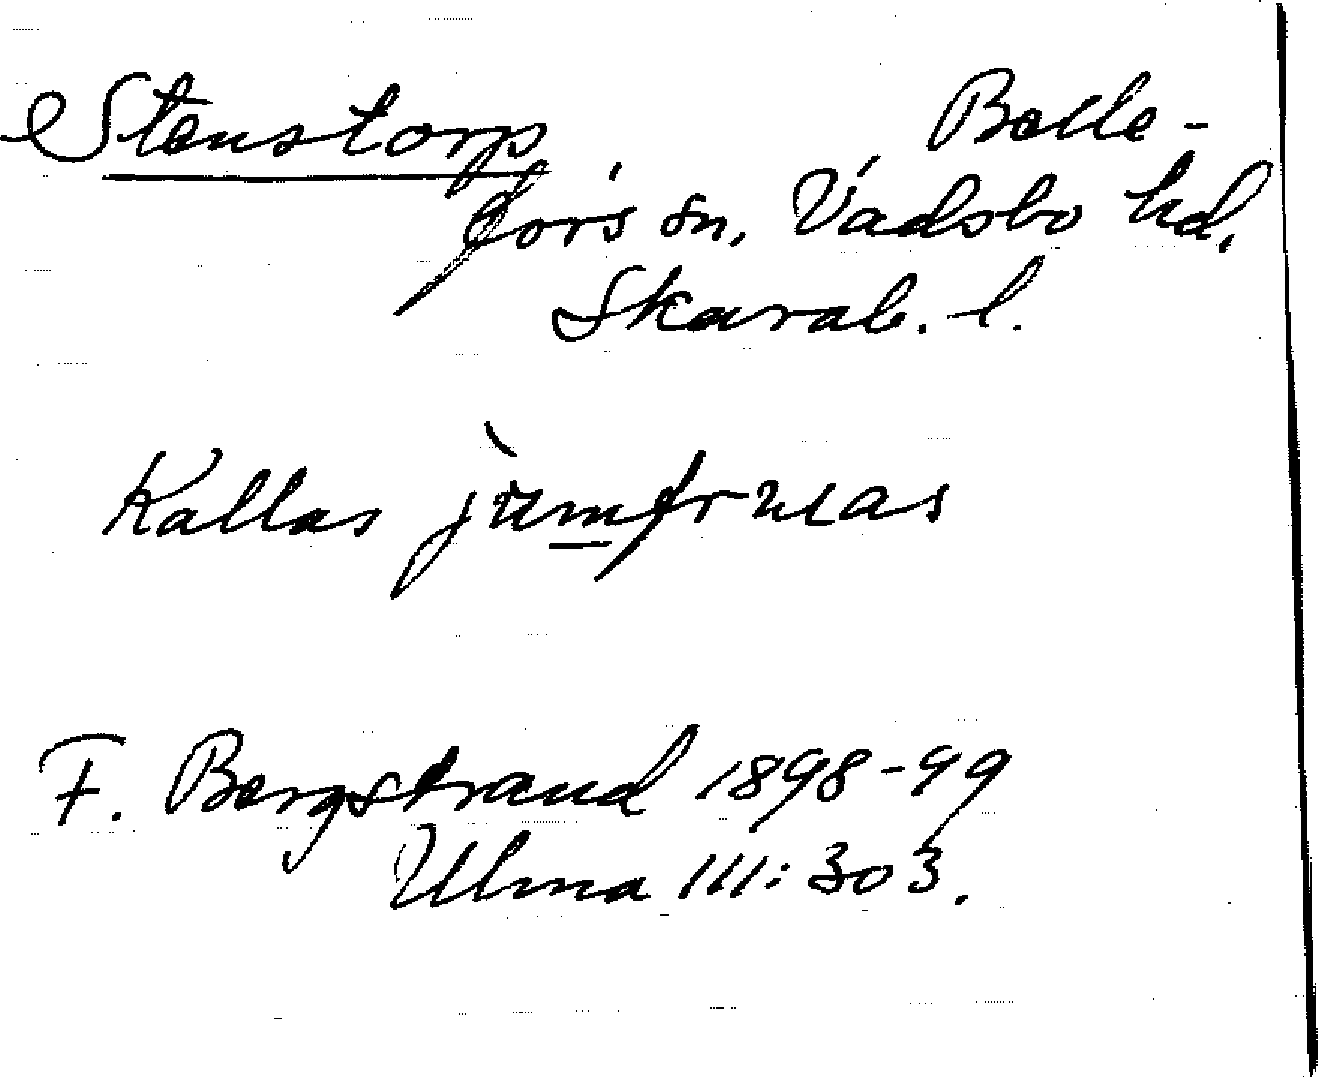 Stenstorp Belle-
fors sn. Vadsbo hd.
Skarab. l.
Kallas jùmfruas
F. Bergstrand 1898-99
Ulma 111:303.